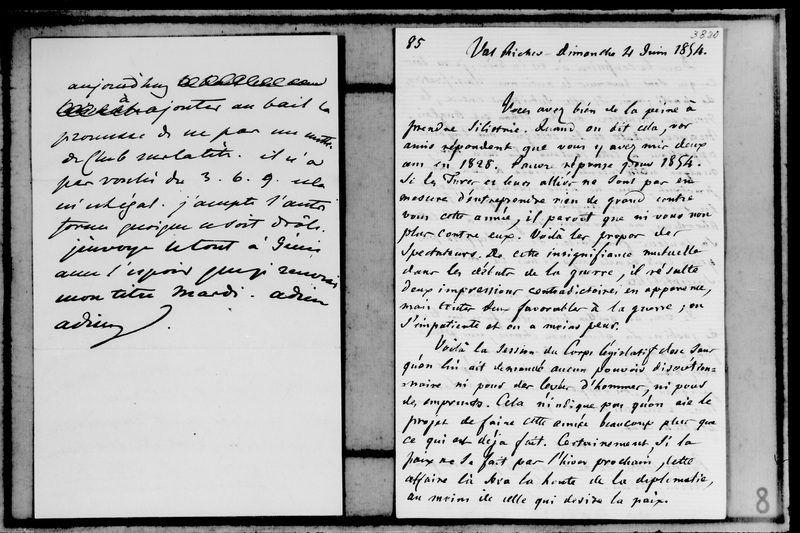 aujourd'huy
à ajouter au bail la
promesse de ne pas un
de Club
pas voulu du 3. 6. 9. cela
m'est égal. j'accepte l'autre
forme quoique ce soit drôle.
j'envoye le tout à Génie
avec l'espoir que je
mon titre Mardi. adieu
adieu.
3820
85
Val Richer - Dimanche 4 Juin 1854.
Vous avez bien de la peine à
prendre Silistrie. Quand on dit cela, vos
amis répondent que vous y avez mis deux
ans en 1828. Pauvre réponse pour 1854.
Si les Turcs et leurs alliés ne sont pas en
mesure d'entreprendre rien de grand contre
vous cette année, il paroît que ni vous non
plus contre eux. Voilà les propos des
Spectateurs. De cette insignifiance mutuelle
dans les débuts de la guerre, il résulte
deux impressions contradictoires en apparence,
mais toutes deux favorables à la guerre ; on
s'impatiente et on a moins peur.
Voilà la session du Corps législatif close sans
qu'on lui ait demandé aucun pouvoir discrétion-
-naire ni pour des levées d'hommes, ni pour
des emprunts. Cela n'indique pas qu'on aie le
projet de faire cette année beaucoup plus que
ce qui est déjà fait. Certainement si la
paix ne se fait pas l'hiver prochain, cette
affaire là sera la honte de la diplomatie,
au moins de celle qui desire la paix.
8